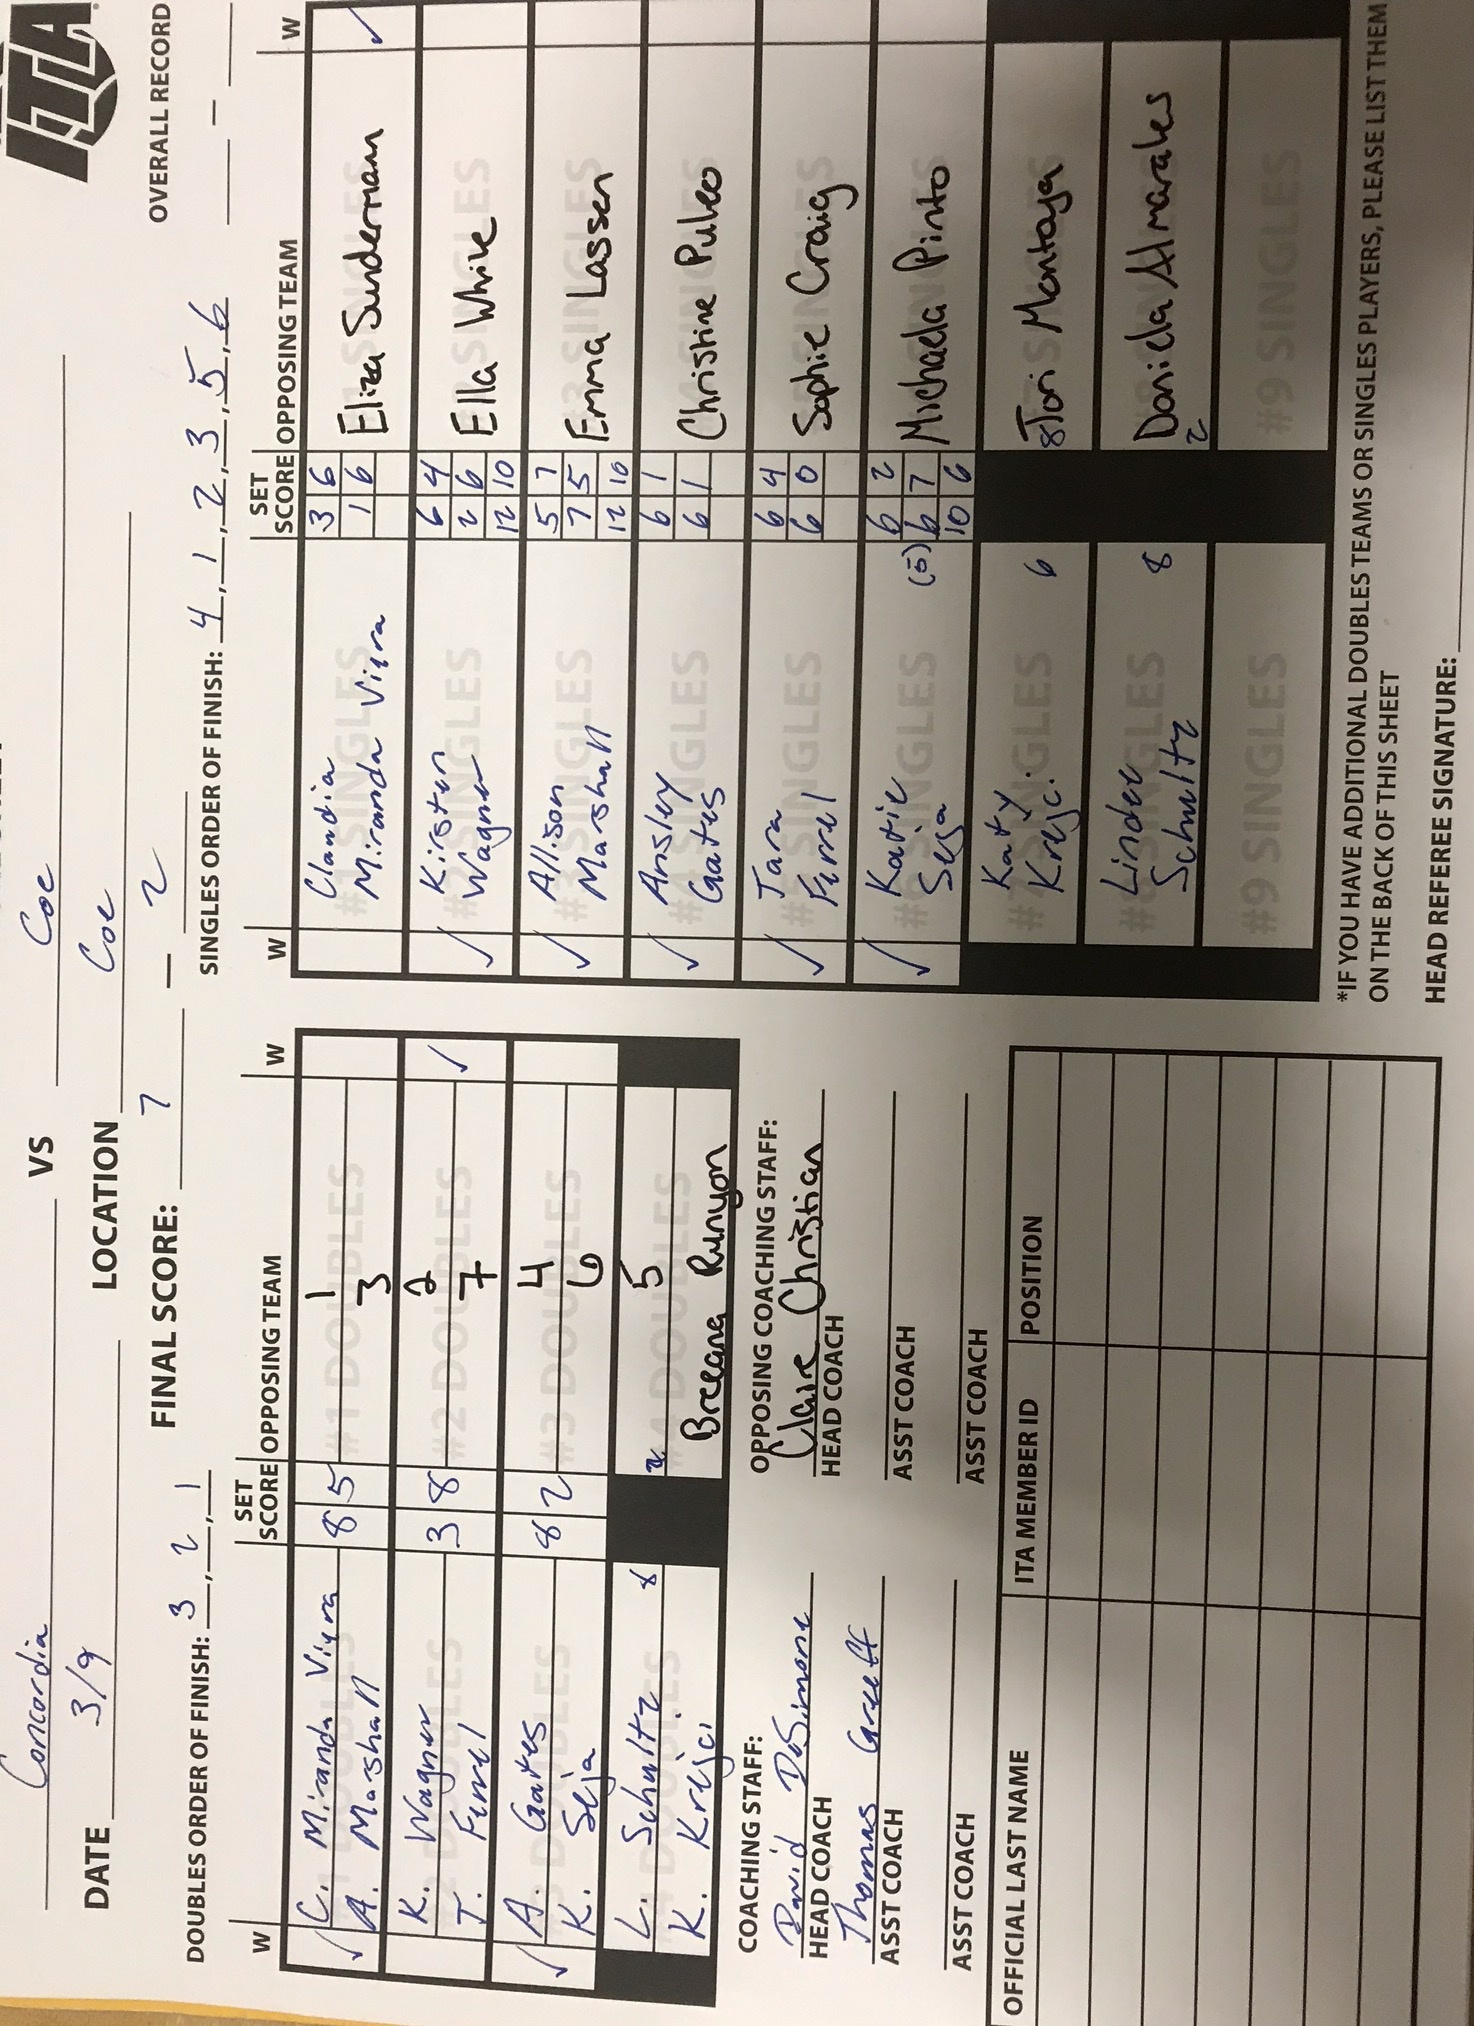 ITA
Concordia VS Coe
DATE 3/9 LOCATION Coe
FINAL SCORE: 7 – 2
OVERALL RECORD –
DOUBLES ORDER OF FINISH: 3, 2, 1
SINGLES ORDER OF FINISH: 4, 1, 2, 3, 5, 6
W SET SCORE OPPOSING TEAM W
✓ C. Miranda Viera 8 5 1
A. Marshall 3
#1 DOUBLES #1 DOUBLES
K. Wagner 3 8 2 ✓
T. Furrel 7
#2 DOUBLES #2 DOUBLES
✓ A. Gates 8 2 4
K. Seja 6
#3 DOUBLES #3 DOUBLES
L. Schultz 8 2 5
K. Krejci Breeana Runyon
#4 DOUBLES #4 DOUBLES
COACHING STAFF:
David DeSimone
HEAD COACH
Thomas Greeff
ASST COACH
ASST COACH
OPPOSING COACHING STAFF:
Claire Christian
HEAD COACH
ASST COACH
ASST COACH
OFFICIAL LAST NAME ITA MEMBER ID POSITION
W SET SCORE OPPOSING TEAM W
Claudia 3 6 Eliza Sundermann ✓
Miranda Viera 1 6
#1 SINGLES #1 SINGLES
✓ Kirsten 6 4 Ella White
Wagner 2 6
12 10
#2 SINGLES #2 SINGLES
✓ Allison 5 7 Emma Lassen
Marshall 7 5
12 10
#3 SINGLES #3 SINGLES
✓ Ansley 6 1 Christine Puleo
Gates 6 1
#4 SINGLES #4 SINGLES
✓ Tara 6 4 Sophie Craig
Furrel 6 0
#5 SINGLES #5 SINGLES
✓ Katie 6 2 Michaela Pinto
Seja (5) 6 7
10 6
#6 SINGLES #6 SINGLES
Katy 6 8 Tori Montoya
Krejci
#7 SINGLES #7 SINGLES
Linder 8 2 Daniela Almarales
Schultz
#8 SINGLES #8 SINGLES
#9 SINGLES #9 SINGLES
*IF YOU HAVE ADDITIONAL DOUBLES TEAMS OR SINGLES PLAYERS, PLEASE LIST THEM
ON THE BACK OF THIS SHEET
HEAD REFEREE SIGNATURE: